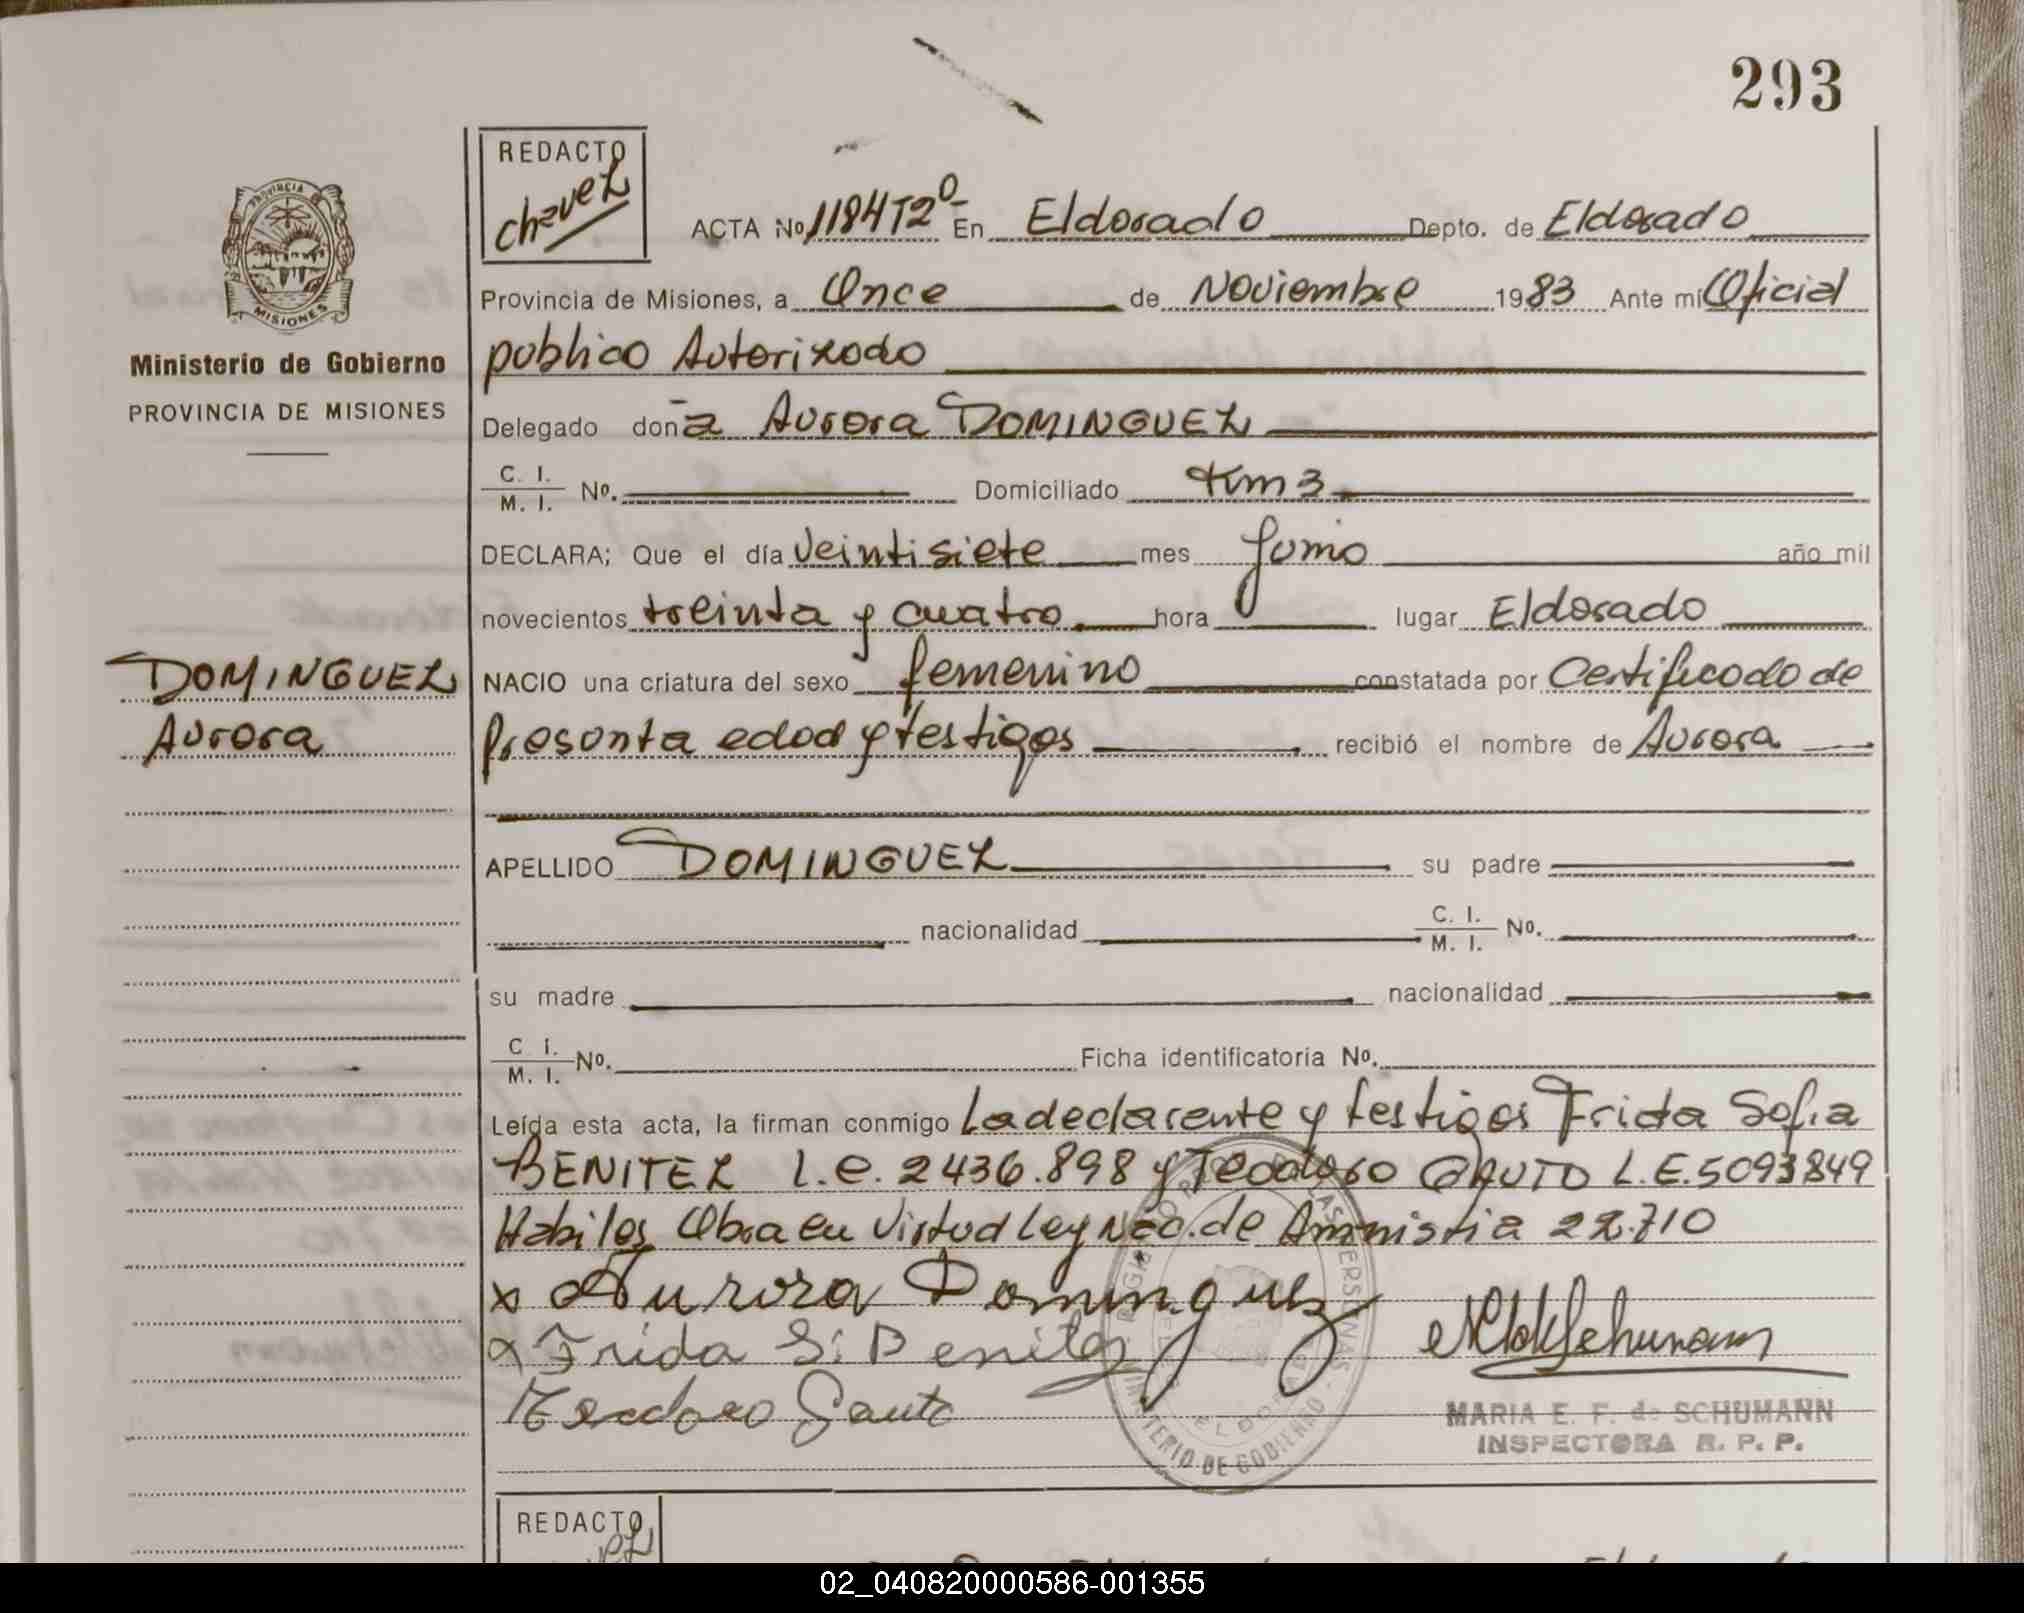 293
REDACTO
chavez
ACTA No 1184T2º- En Eldorado Depto. de Eldorado
Provincia de Misiones, a Once de Noviembre 1983 Ante mi Oficial
publico Autorizado
Delegado doña Aurora DOMINGUEZ
C. I.
M. I. No. Domiciliado Km 3
DECLARA; Que el día veintisiete mes Junio año mil
novecientos treinta y cuatro hora lugar Eldorado
NACIO una criatura del sexo femenino constatada por Certificado de
Presonta edad y testigos recibió el nombre de Aurora
APELLIDO DOMINGUEZ su padre
nacionalidad C. I.
M. I. No.
su madre nacionalidad
C. I.
M. I. No. Ficha identificatoria No.
Leída esta acta, la firman conmigo La declarente y testigos Frida Sofia
BENITEZ L.e. 2436.898 y Teodoro GAUTO L.E. 5093849
Habiles Obra en Virtud Ley Nac. de Amnistia 22.710
x Aurora Dominguez
x Frida S. Benitez
Teodoro Gauto
MARIA E. F. de SCHUMANN
INSPECTORA R. P. P.
MINISTERIO DE GOBIERNO
ELDORADO
PROVINCIA
MISIONES
Ministerio de Gobierno
PROVINCIA DE MISIONES
DOMINGUEZ
Aurora
REDACTO
02_040820000586-001355